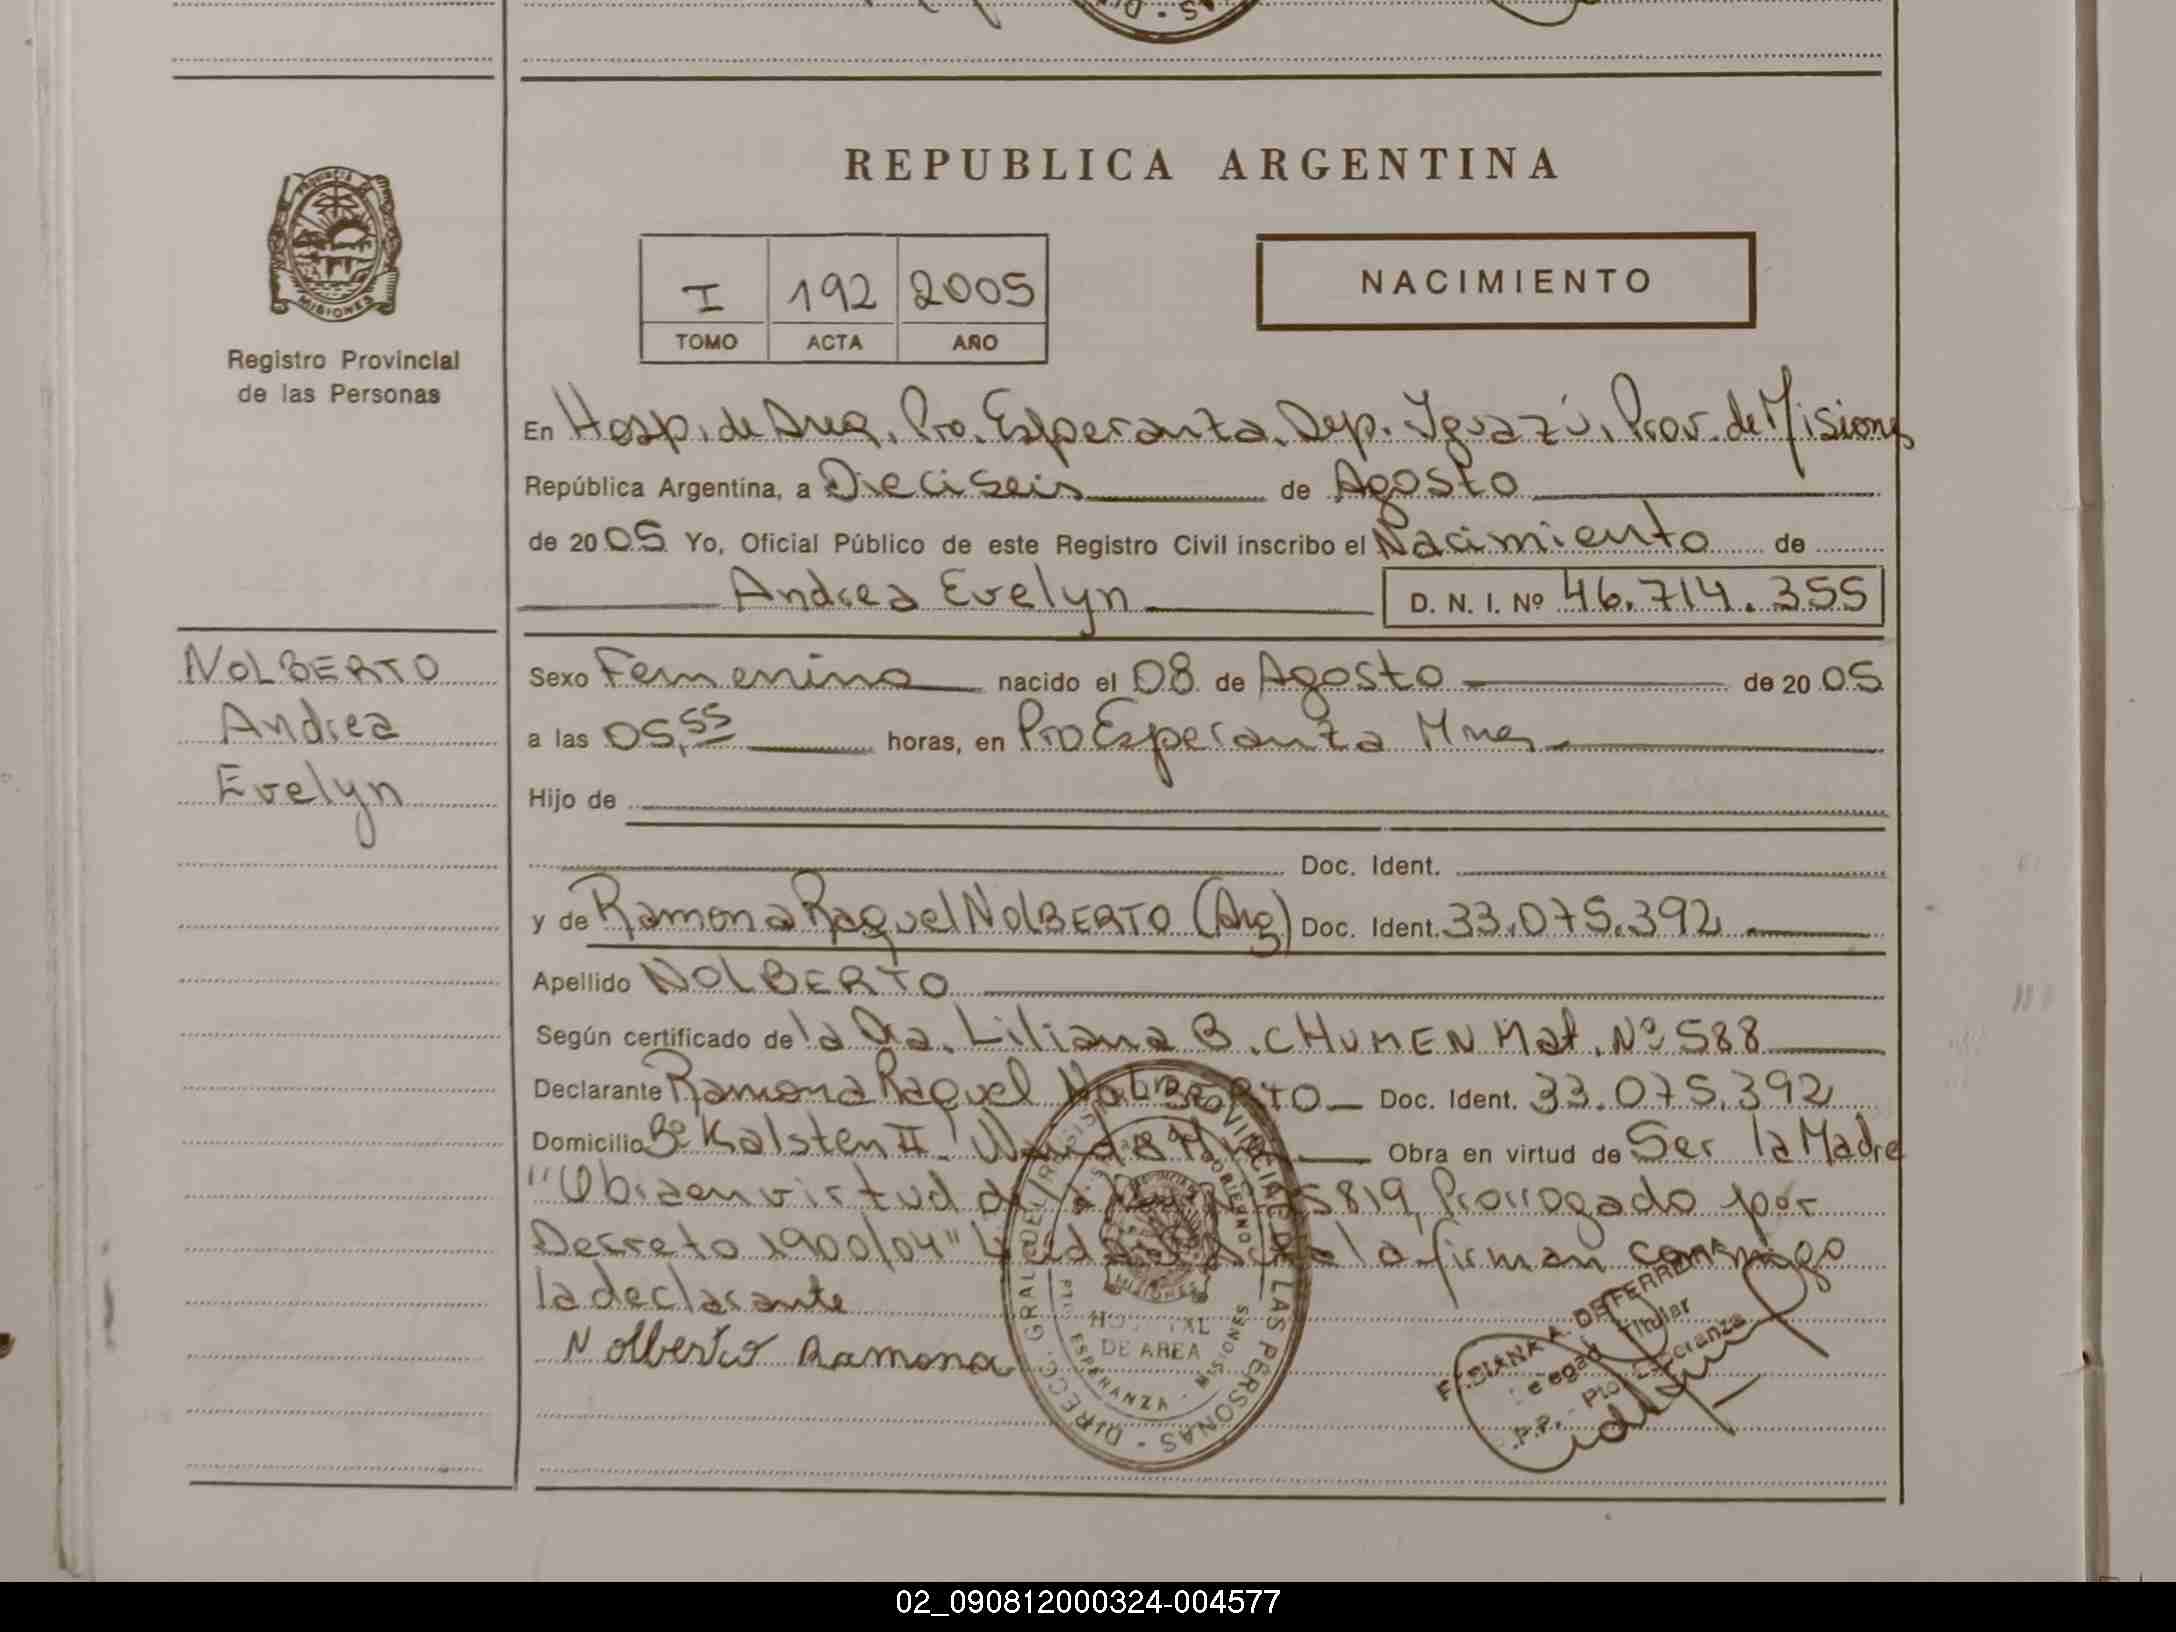 REPUBLICA ARGENTINA
MISIONES
Registro Provincial
de las Personas
I 192 2005
TOMO ACTA AÑO
NACIMIENTO
En Hosp. de Area. Pto. Esperanza. Dep. Iguazú. Prov. de Misiones
República Argentina, a Dieciseis de Agosto
de 2005 Yo, Oficial Público de este Registro Civil inscribo el Nacimiento de
Andrea Evelyn D. N. I. Nº 46.714.355
NOLBERTO
Andrea
Evelyn
Sexo Femenino nacido el 08 de Agosto de 2005
a las 05,55 horas, en Pto Esperanza Mnes
Hijo de
Doc. Ident.
y de Ramona Raquel NOLBERTO (Arg) Doc. Ident. 33.075.392
Apellido NOLBERTO
Según certificado de la Dra. Liliana B. CHUMEN Mat. Nº 588
Declarante Ramona Raquel NOLBERTO Doc. Ident. 33.075.392
Domicilio Bº Kalsten II. Wanda Obra en virtud de Ser la Madre
"Obra en virtud de la 25819, Prorrogado por
Decreto 1900/04" la firman conmigo
la declarante
Nolberto Ramona
DIRECC. GRAL. DEL REGISTRO PROVINCIAL DE LAS PERSONAS
HOSPITAL
DE AREA
ESPERANZA - MISIONES
FABIANA A. DE FERREYRA
Delegada Titular
Pto. Esperanza
02_090812000324-004577